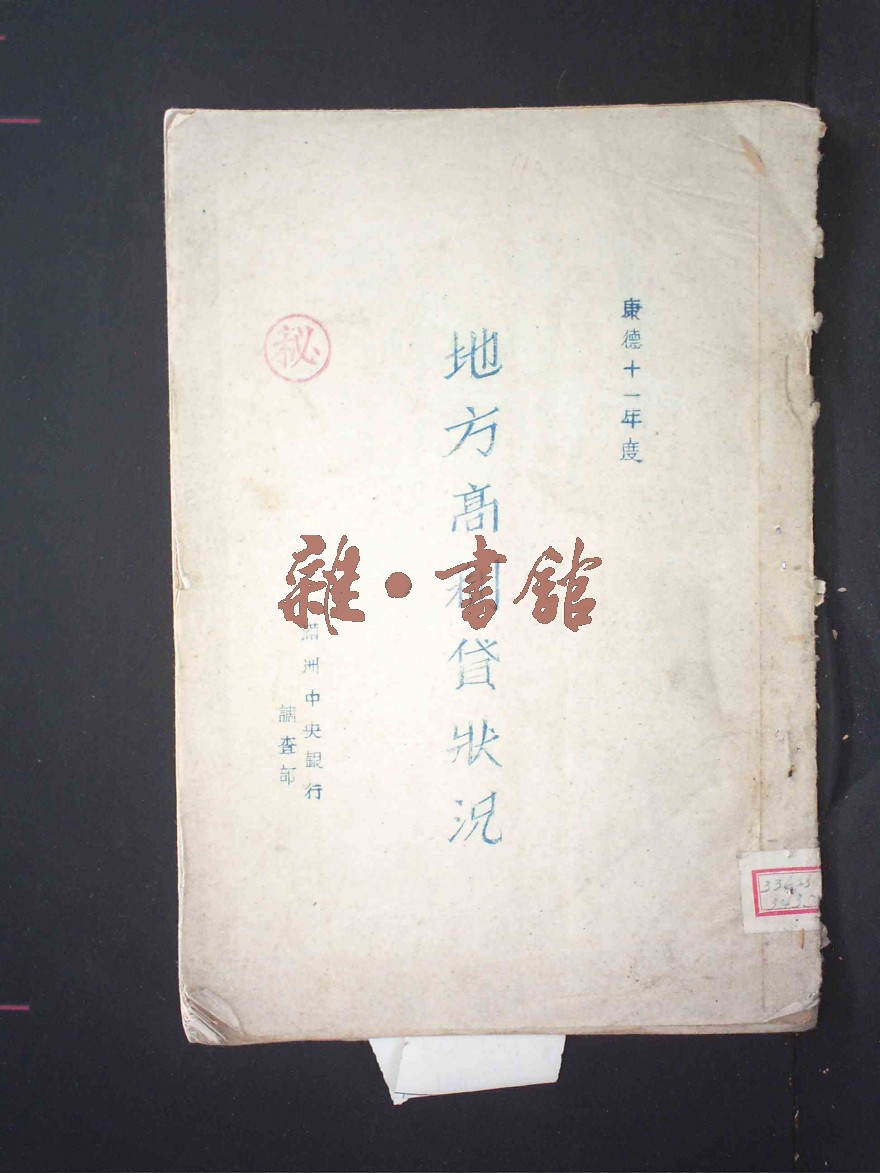 康德十一年度
地方高利貸狀況
秘
滿洲中央銀行
調査部
雜·書館